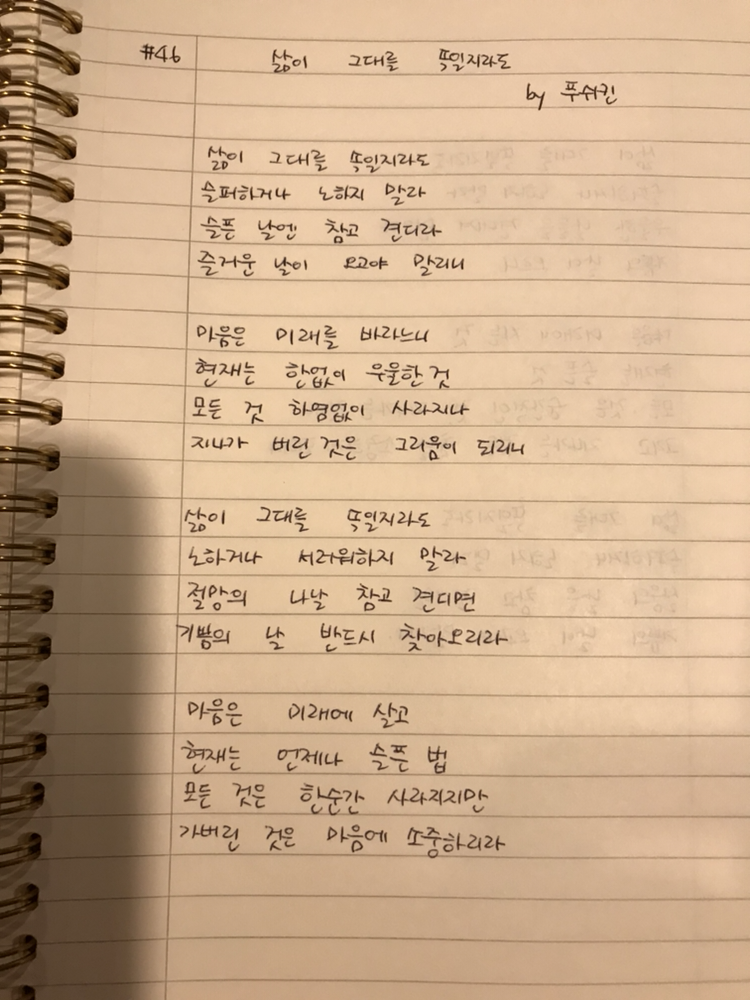 #46 삶이 그대를 속일지라도
by 푸쉬킨
삶이 그대를 속일지라도
슬퍼하거나 노하지 말라
슬픈 날엔 참고 견디라
즐거운 날이 오고야 말리니
마음은 미래를 바라느니
현재는 한없이 우울한 것
모든 것 하염없이 사라지나
지나가 버린 것은 그리움이 되리니
삶이 그대를 속일지라도
노하거나 서러워하지 말라
절망의 나날 참고 견디면
기쁨의 날 반드시 찾아오리라
마음은 미래에 살고
현재는 언제나 슬픈 법
모든 것은 한순간 사라지지만
가버린 것은 마음에 소중하리라